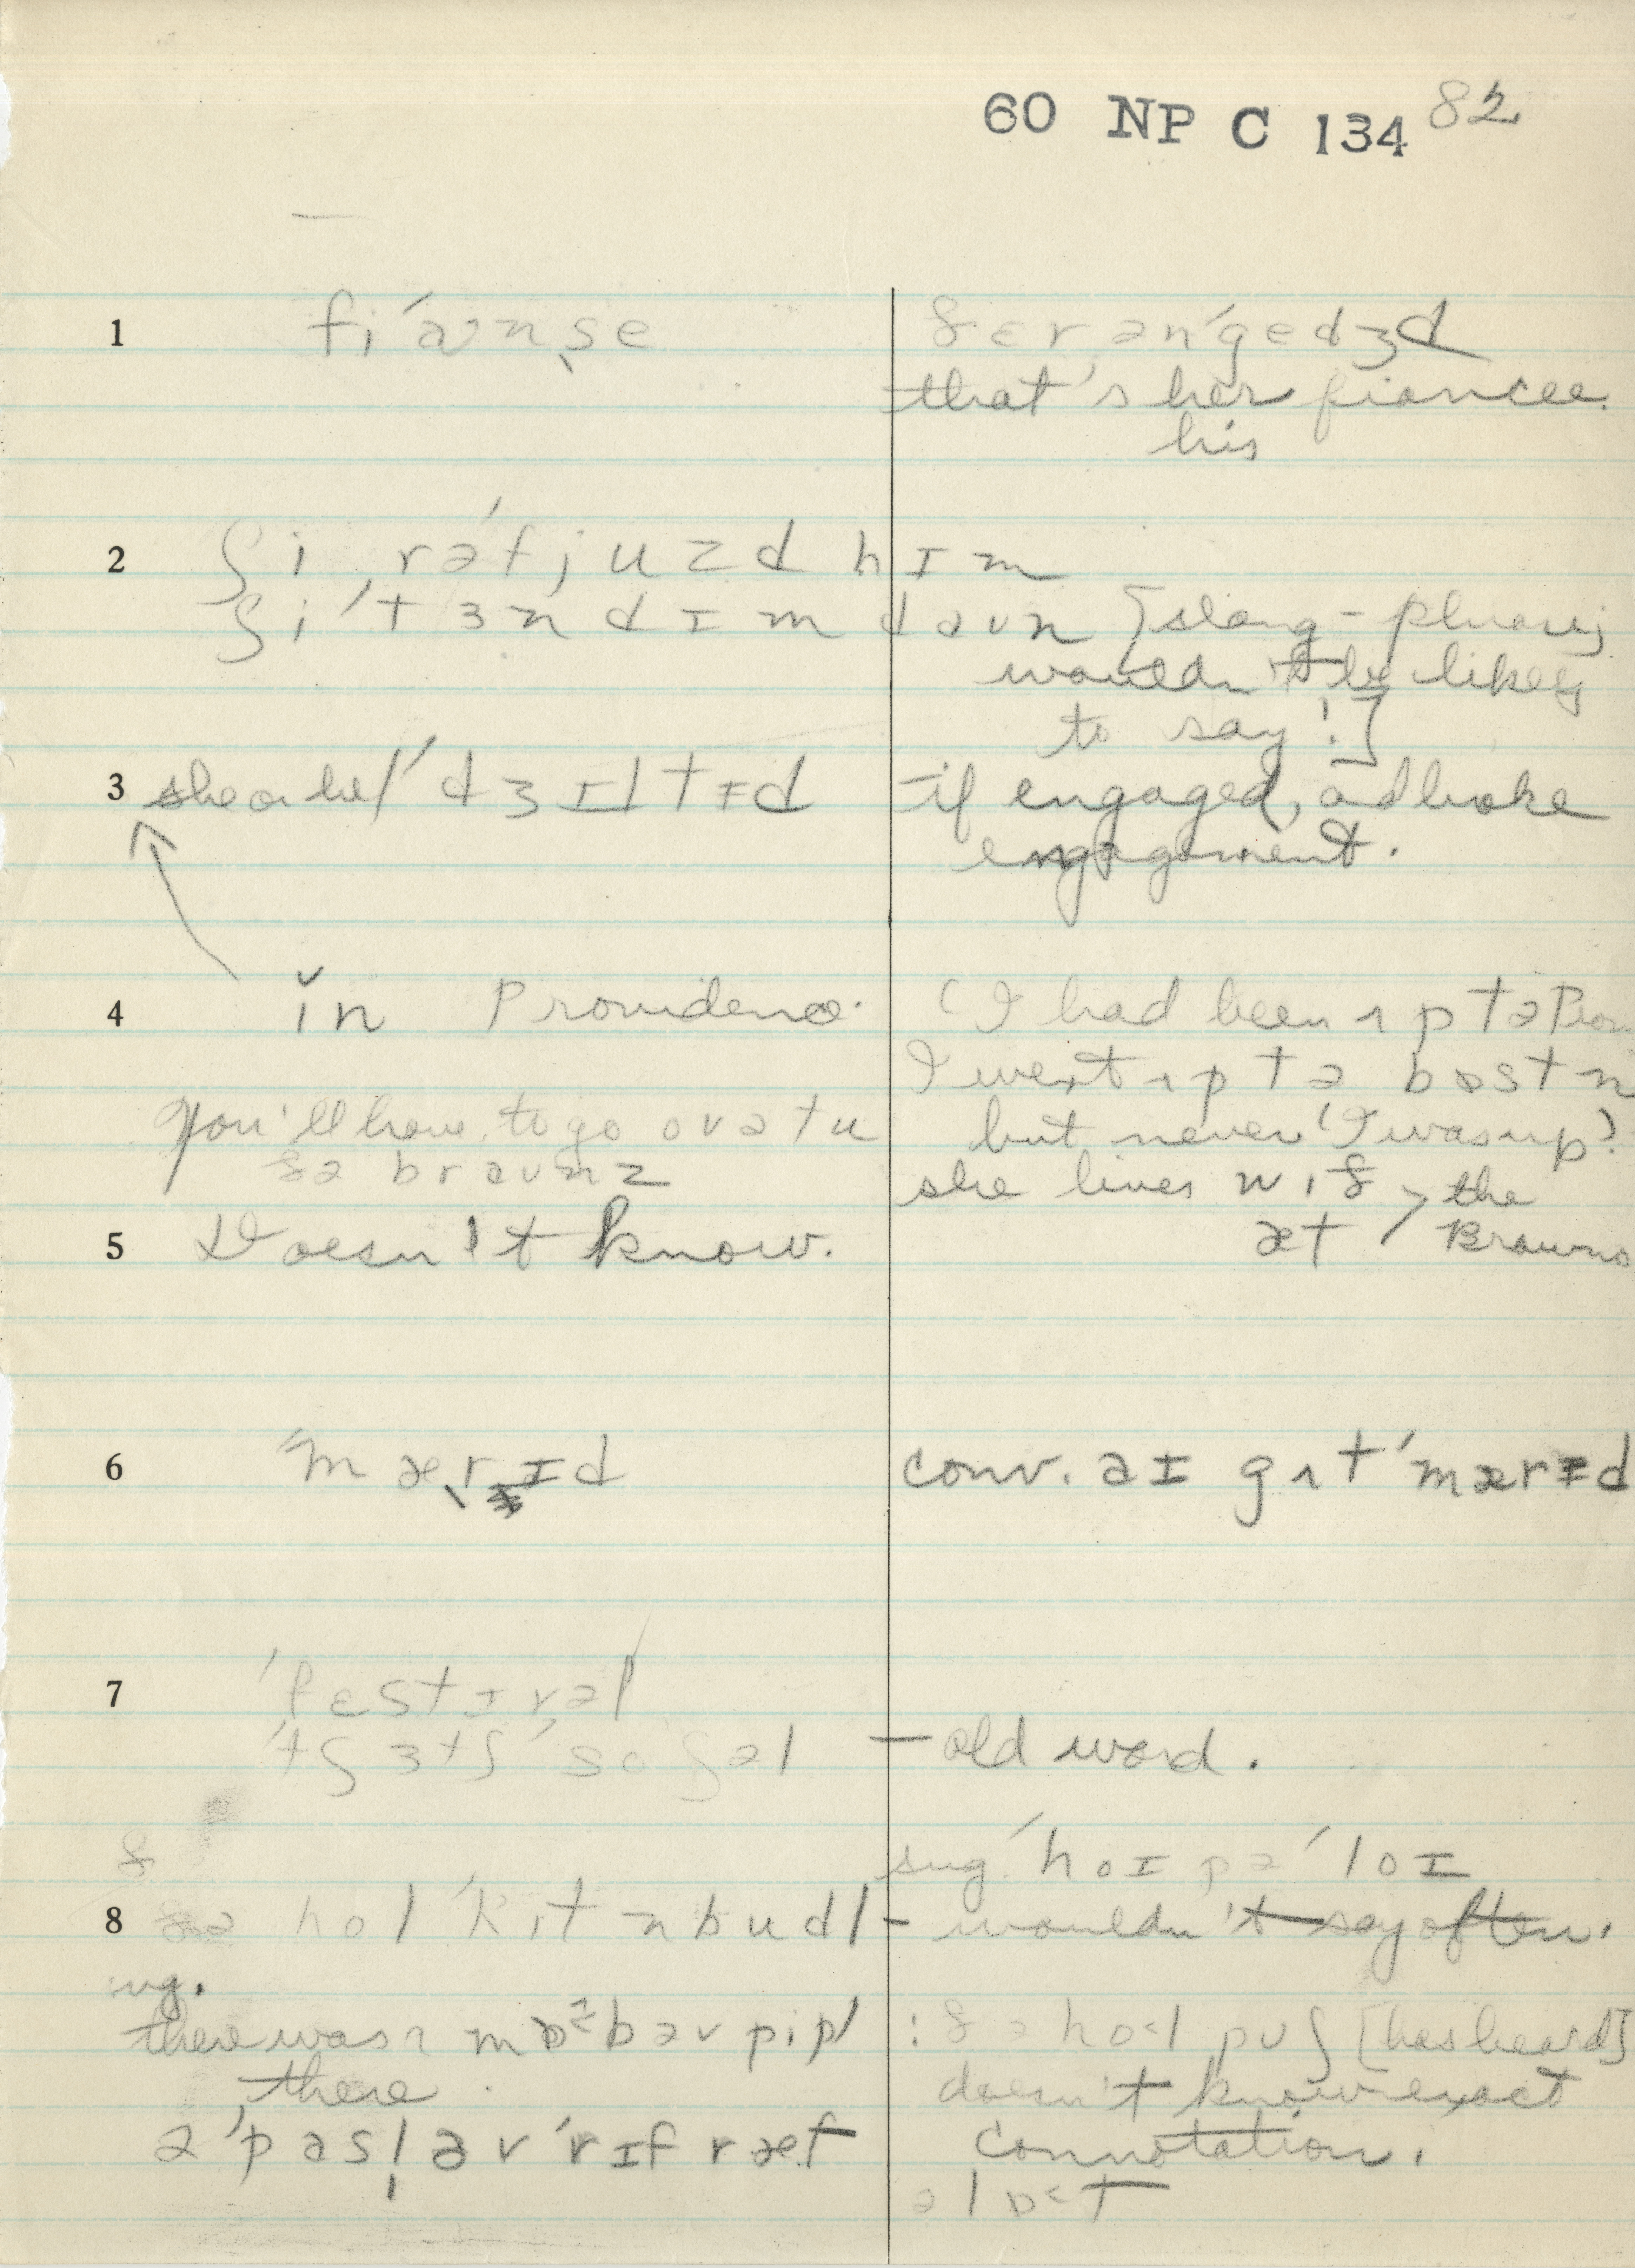 60 NP C 134 82
1 fi'ɑnse ðɛr ən'gedʒd
that's her fiancee.
his
2 ʃi rə'fjuzd hɪm
ʃi 'tɜnd ɪm daʊn [slang – phrase;
wouldn't be likely
to say!]
3 she or he / 'dʒɪltɪd – if engaged, and broke
engagement.
4 ĭn Providence. (I had been ʌp tə Prov
I went ʌp tə bɒstn
you'll have to go ovə tu but never 'I was up')
ðə braunz she lives wið, the
5 Doesn't know. æt / Browns
6 'mærɪd conv. aɪ gʌt 'mærɪd
7 'fɛstɪvəl
'tʃɜtʃ 'soʃəl – old word.
sug. 'hoɪ pə'loɪ
8 ðə hol 'kɪt n budl – wouldn't say often.
ug.
there was ə mɒb əv pipl : ðə hol puʃ [has heard]
there. doesn't know exact
ə 'pasl əv 'rɪf ræf connotation.
ə lɒt